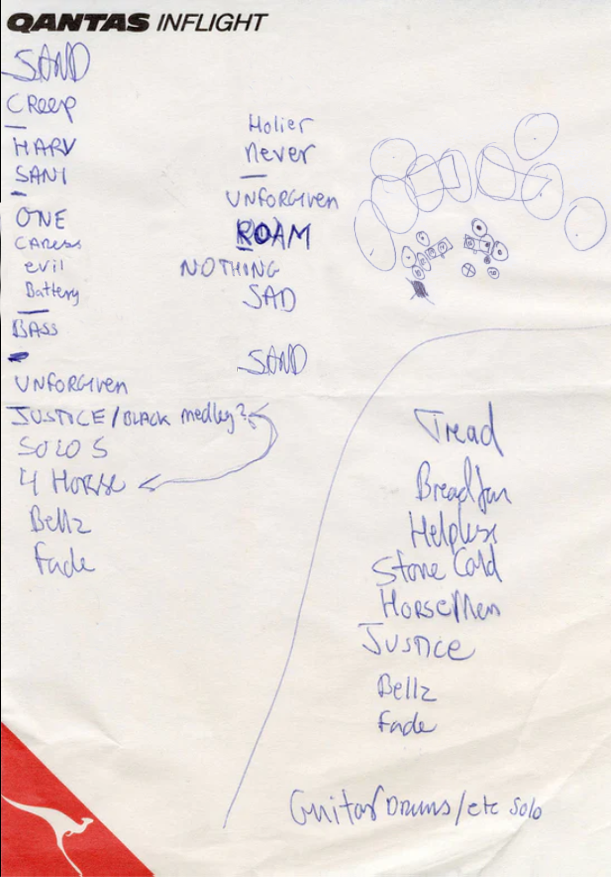 QANTAS INFLIGHT
SAND
Creep
HARV
SANI
ONE
CAREss
evil
Battery
BASS
UNFORGIVen
JUSTICE/BLACK medley?
SOLOS
4 Horse
Bellz
Fade
Holier
never
UNFORGIVen
ROAM
NOTHING
SAD
SAND
Tread
Breadfan
Helpless
Stone Cold
HorseMen
JUSTICE
Bellz
Fade
Guitar Drums/etc solo